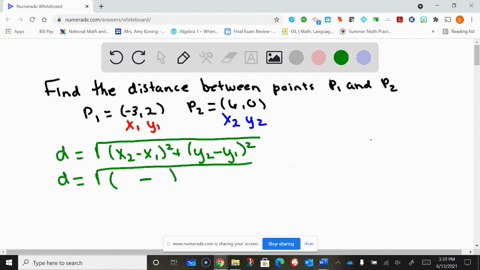 Numerade Whiteboard
numerade.com/answers/whiteboard/
Apps Bill Pay National Math and ... Mrs. Amy Koning - ... Algebra 1 – Whenev... Final Exam Review -... (X) | Math, Languag... Summer Math Pract... Reading list
Find the distance between points P₁ and P₂
P₁ = (-3, 2) P₂ = (6, 0)
x₁ y₁ x₂ y₂
d = √(x₂-x₁)²+(y₂-y₁)²
d = √( - )
www.numerade.com is sharing your screen. Stop sharing Hide
Type here to search
3:39 PM
6/13/2021